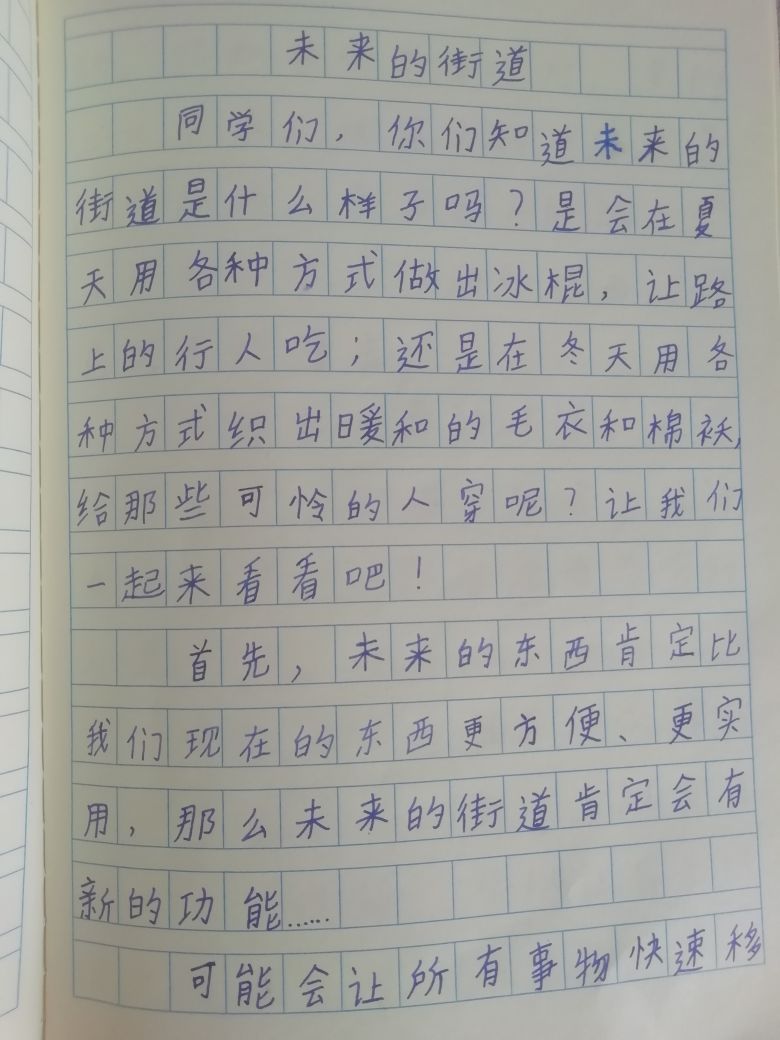 未来的街道
同学们，你们知道未来的
街道是什么样子吗？是会在夏
天用各种方式做出冰棍，让路
上的行人吃；还是在冬天用各
种方式织出暖和的毛衣和棉袄，
给那些可怜的人穿呢？让我们
一起来看看吧！
首先，未来的东西肯定比
我们现在的东西更方便、更实
用，那么未来的街道肯定会有
新的功能……
可能会让所有事物快速移